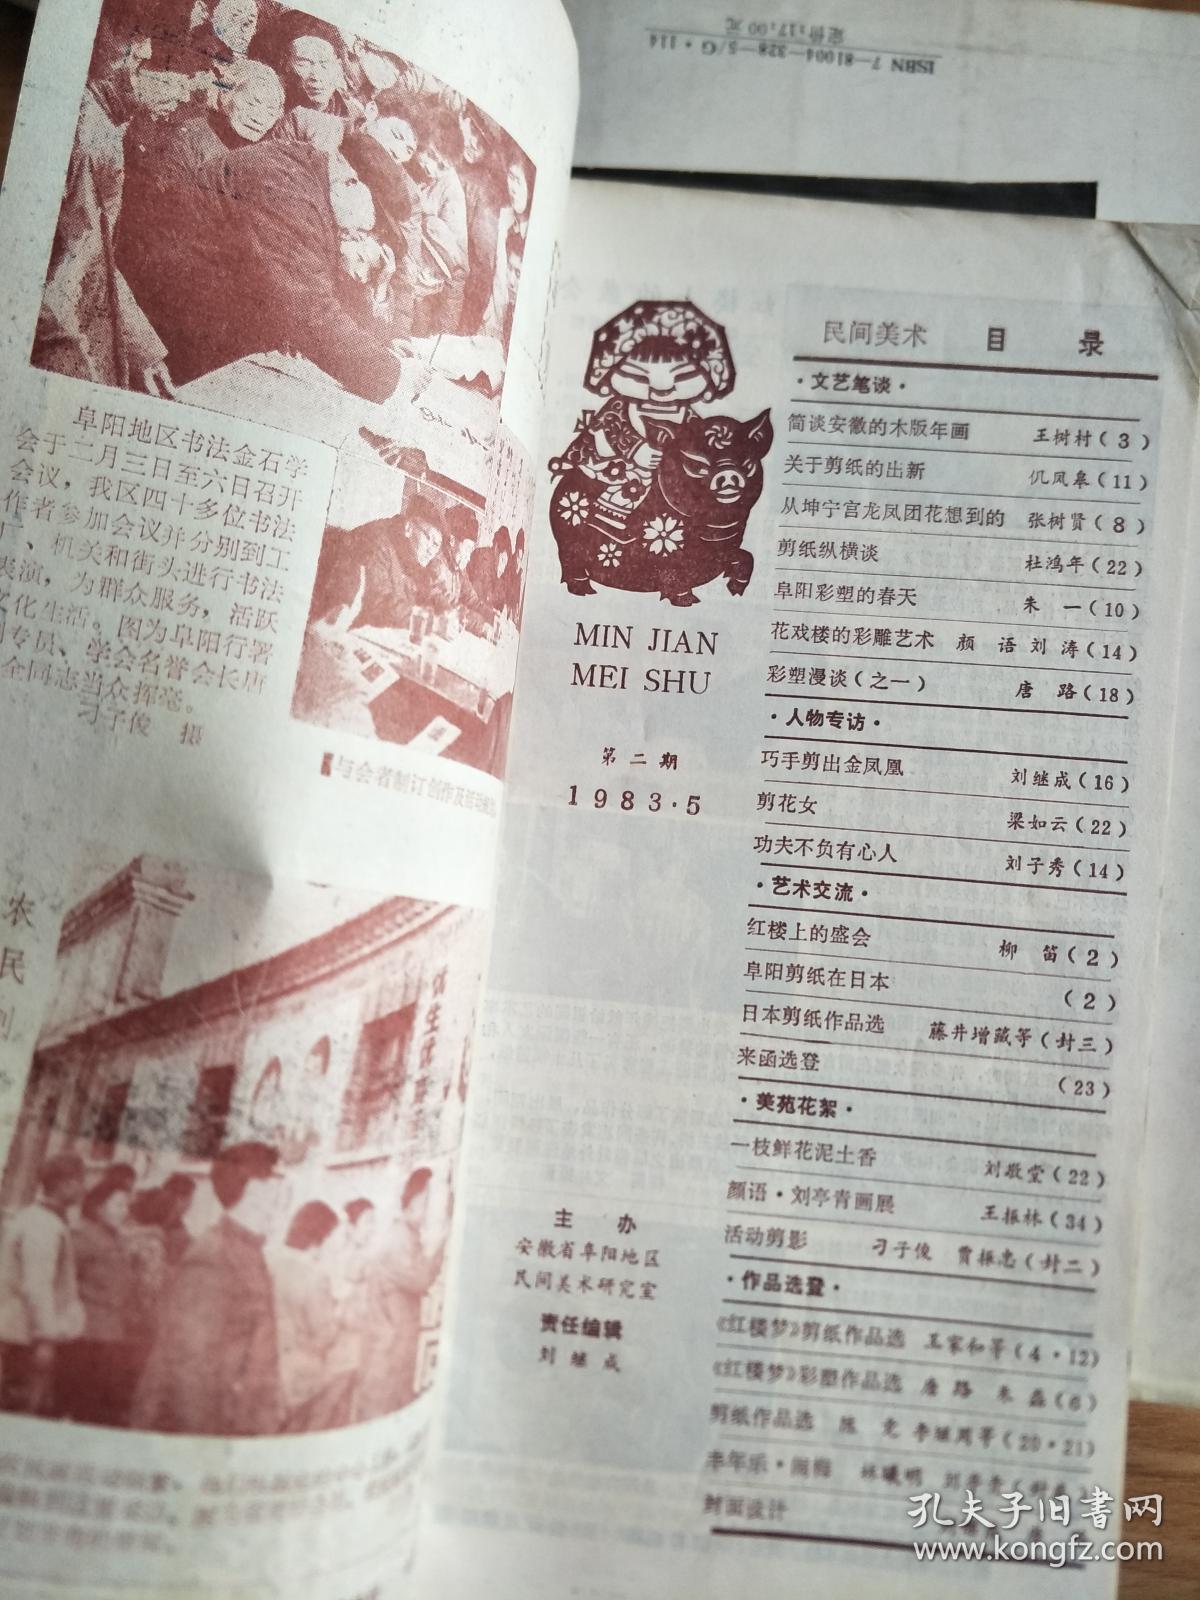 定价：17.00 元
ISBN 7—81004—328—5/G·114
阜阳地区书法金石学
会于二月三日至六日召开
会议，我区四十多位书法
作者参加会议并分别到工
厂、机关和街头进行书法
表演，为群众服务，活跃
文化生活。图为阜阳行署
专员、学会名誉会长唐
全同志当众挥毫。
刁子俊 摄
与会者制订创作及活动
农
民
MIN JIAN
MEI SHU
第二期
1983·5
主 办
安徽省阜阳地区
民间美术研究室
责任编辑
刘继成
民间美术 目 录
·文艺笔谈·
简谈安徽的木版年画 王树村(3)
关于剪纸的出新 仉凤皋(11)
从坤宁宫龙凤团花想到的 张树贤(8)
剪纸纵横谈 杜鸿年(22)
阜阳彩塑的春天 朱 一(10)
花戏楼的彩雕艺术 颜 语 刘 涛(14)
彩塑漫谈(之一) 唐 路(18)
·人物专访·
巧手剪出金凤凰 刘继成(16)
剪花女 梁如云(22)
功夫不负有心人 刘子秀(14)
·艺术交流·
红楼上的盛会 柳 笛(2)
阜阳剪纸在日本 (2)
日本剪纸作品选 藤井增藏等(封三)
来函选登 (23)
·美苑花絮·
一枝鲜花泥土香 刘敬堂(22)
颜语·刘亭青画展 王振林(34)
活动剪影 刁子俊 贾振忠(封二)
·作品选登·
《红楼梦》剪纸作品选 王家和等(4·12)
《红楼梦》彩塑作品选 唐 路 朱 磊(6)
剪纸作品选 陈 竞 李继周等(20·21)
老年乐·闹梅 林曦明
封面设计
孔夫子旧书网
www.kongfz.com